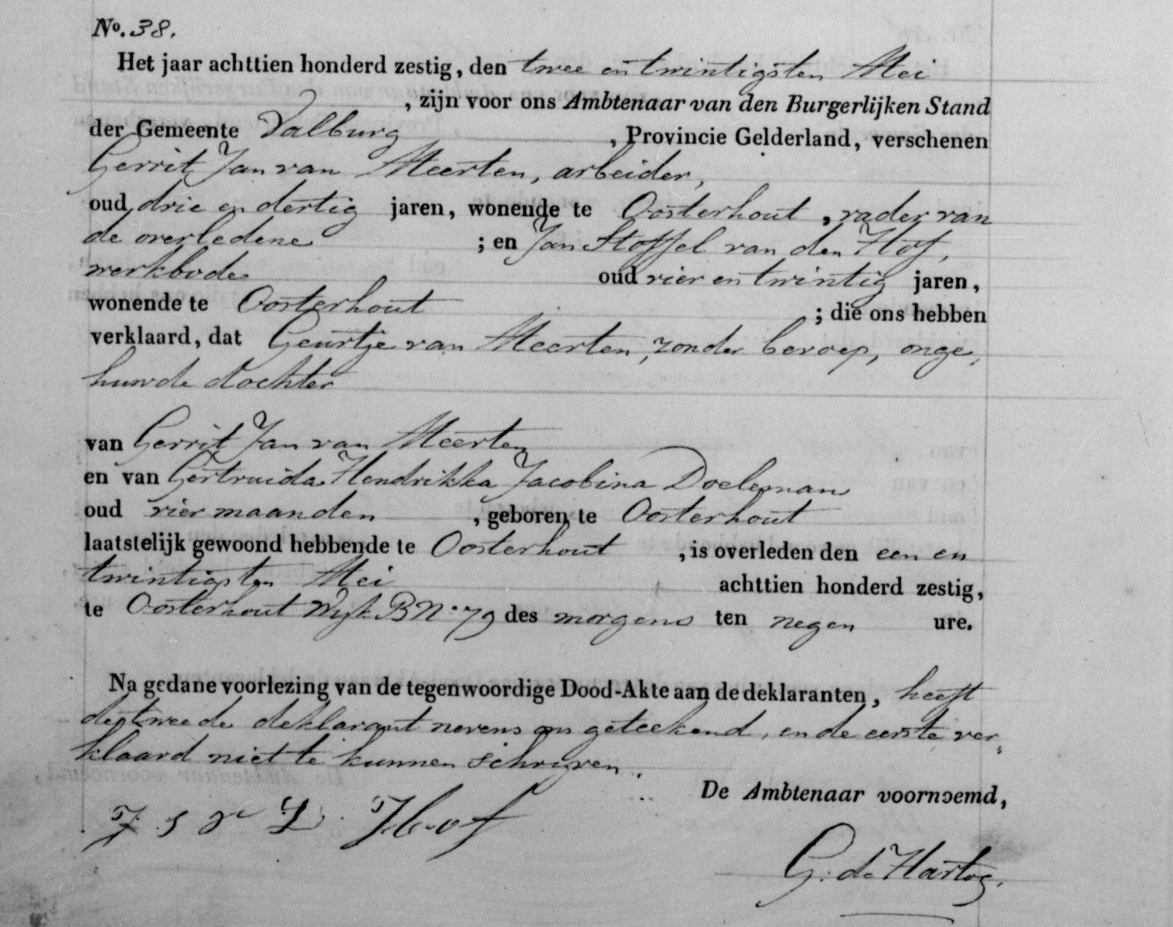 No. 38.
Het jaar achttien honderd zestig, den twee en twintigsten Mei
, zijn voor ons Ambtenaar van den Burgerlijken Stand
der Gemeente Valburg , Provincie Gelderland, verschenen
Gerrit Jan van Meerten, arbeider,
oud drie en dertig jaren, wonende te Oosterhout, vader van
de overledene ; en Jan Stoffel van den Hof,
werkbode oud vier en twintig jaren,
wonende te Oosterhout ; die ons hebben
verklaard, dat Geurtje van Meerten, zonder beroep, onge,
huwde dochter
van Gerrit Jan van Meerten
en van Gertruida Hendrikka Jacobina Doeleman
oud vier maanden , geboren te Oosterhout
laatstelijk gewoond hebbende te Oosterhout , is overleden den een en
twintigsten Mei achttien honderd zestig,
te Oosterhout Wijk B No 79 des morgens ten negen ure.
Na gedane voorlezing van de tegenwoordige Dood-Akte aan de deklaranten, heeft
de tweede deklarant nevens ons geteekend, en de eerste ver-
klaard niet te kunnen schrijven.
De Ambtenaar voornoemd,
J S v D Hof
G. de Hartog.